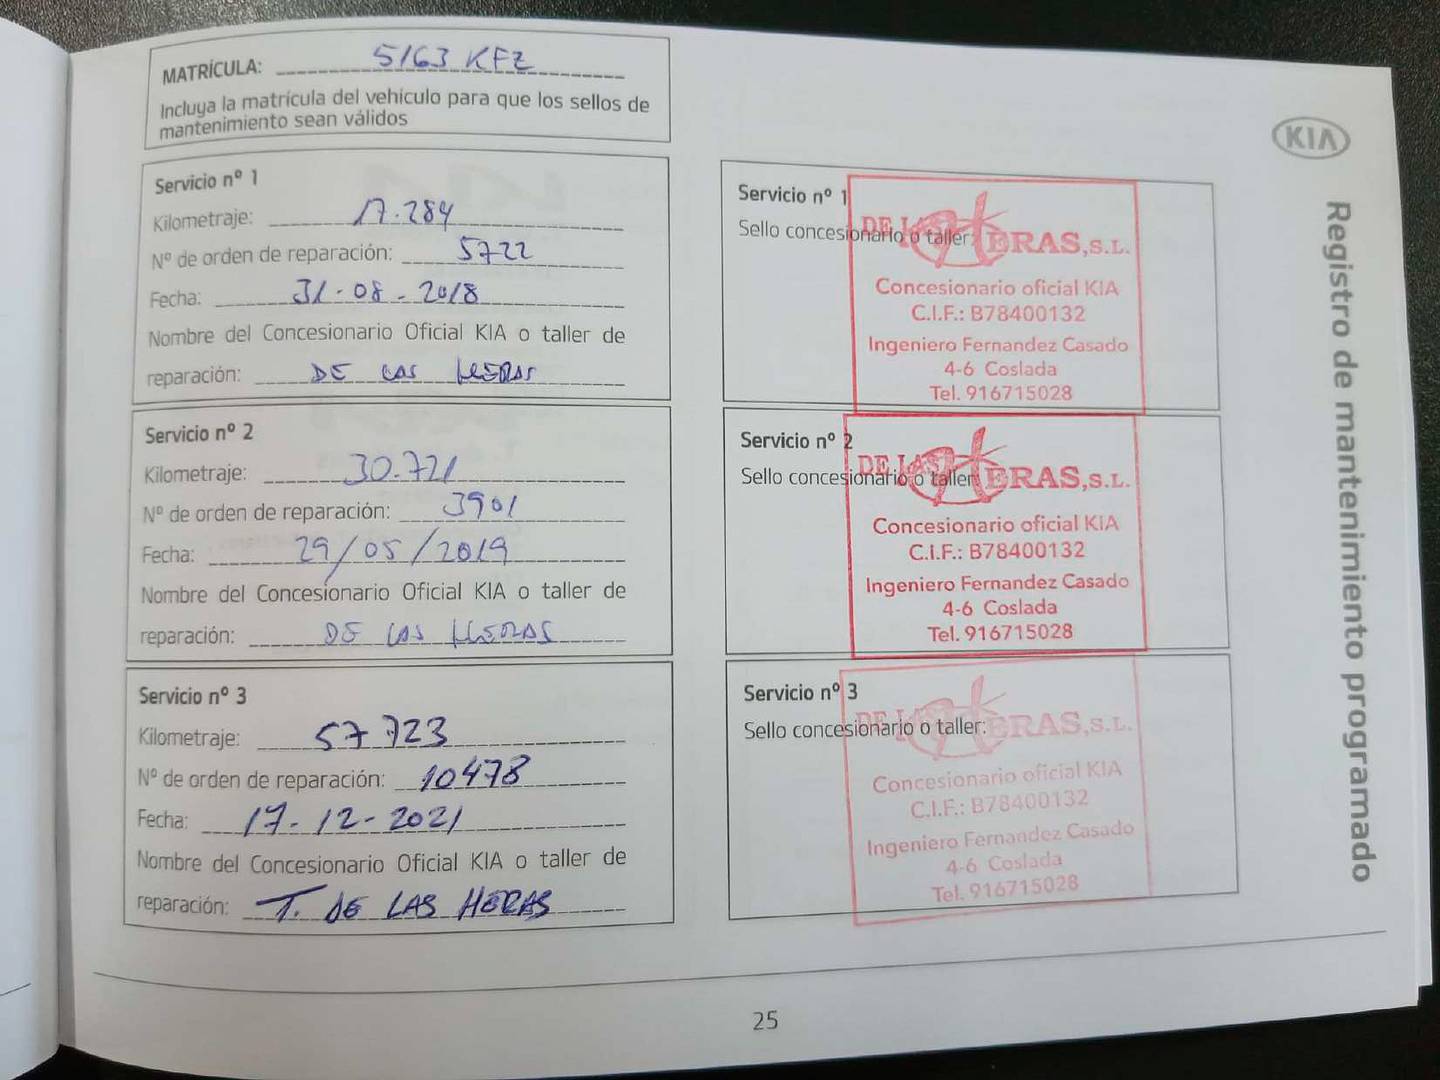 MATRÍCULA: 5163 KFZ
Incluya la matrícula del vehículo para que los sellos de
mantenimiento sean válidos
Servicio nº 1
Kilometraje: 17.284
Nº de orden de reparación: 5722
Fecha: 31-08-2018
Nombre del Concesionario Oficial KIA o taller de
reparación: DE LAS HERAS
Servicio nº 2
Kilometraje: 30.721
Nº de orden de reparación: 3901
Fecha: 29/05/2019
Nombre del Concesionario Oficial KIA o taller de
reparación: DE LAS HERAS
Servicio nº 3
Kilometraje: 57723
Nº de orden de reparación: 10478
Fecha: 17-12-2021
Nombre del Concesionario Oficial KIA o taller de
reparación: T. DE LAS HERAS
Servicio nº 1
Sello concesionario o taller:
DE LAS HERAS, S.L.
Concesionario oficial KIA
C.I.F.: B78400132
Ingeniero Fernandez Casado
4-6 Coslada
Tel. 916715028
Servicio nº 2
Sello concesionario o taller:
DE LAS HERAS, S.L.
Concesionario oficial KIA
C.I.F.: B78400132
Ingeniero Fernandez Casado
4-6 Coslada
Tel. 916715028
Servicio nº 3
Sello concesionario o taller:
DE LAS HERAS, S.L.
Concesionario oficial KIA
C.I.F.: B78400132
Ingeniero Fernandez Casado
4-6 Coslada
Tel. 916715028
KIA
Registro de mantenimiento programado
25